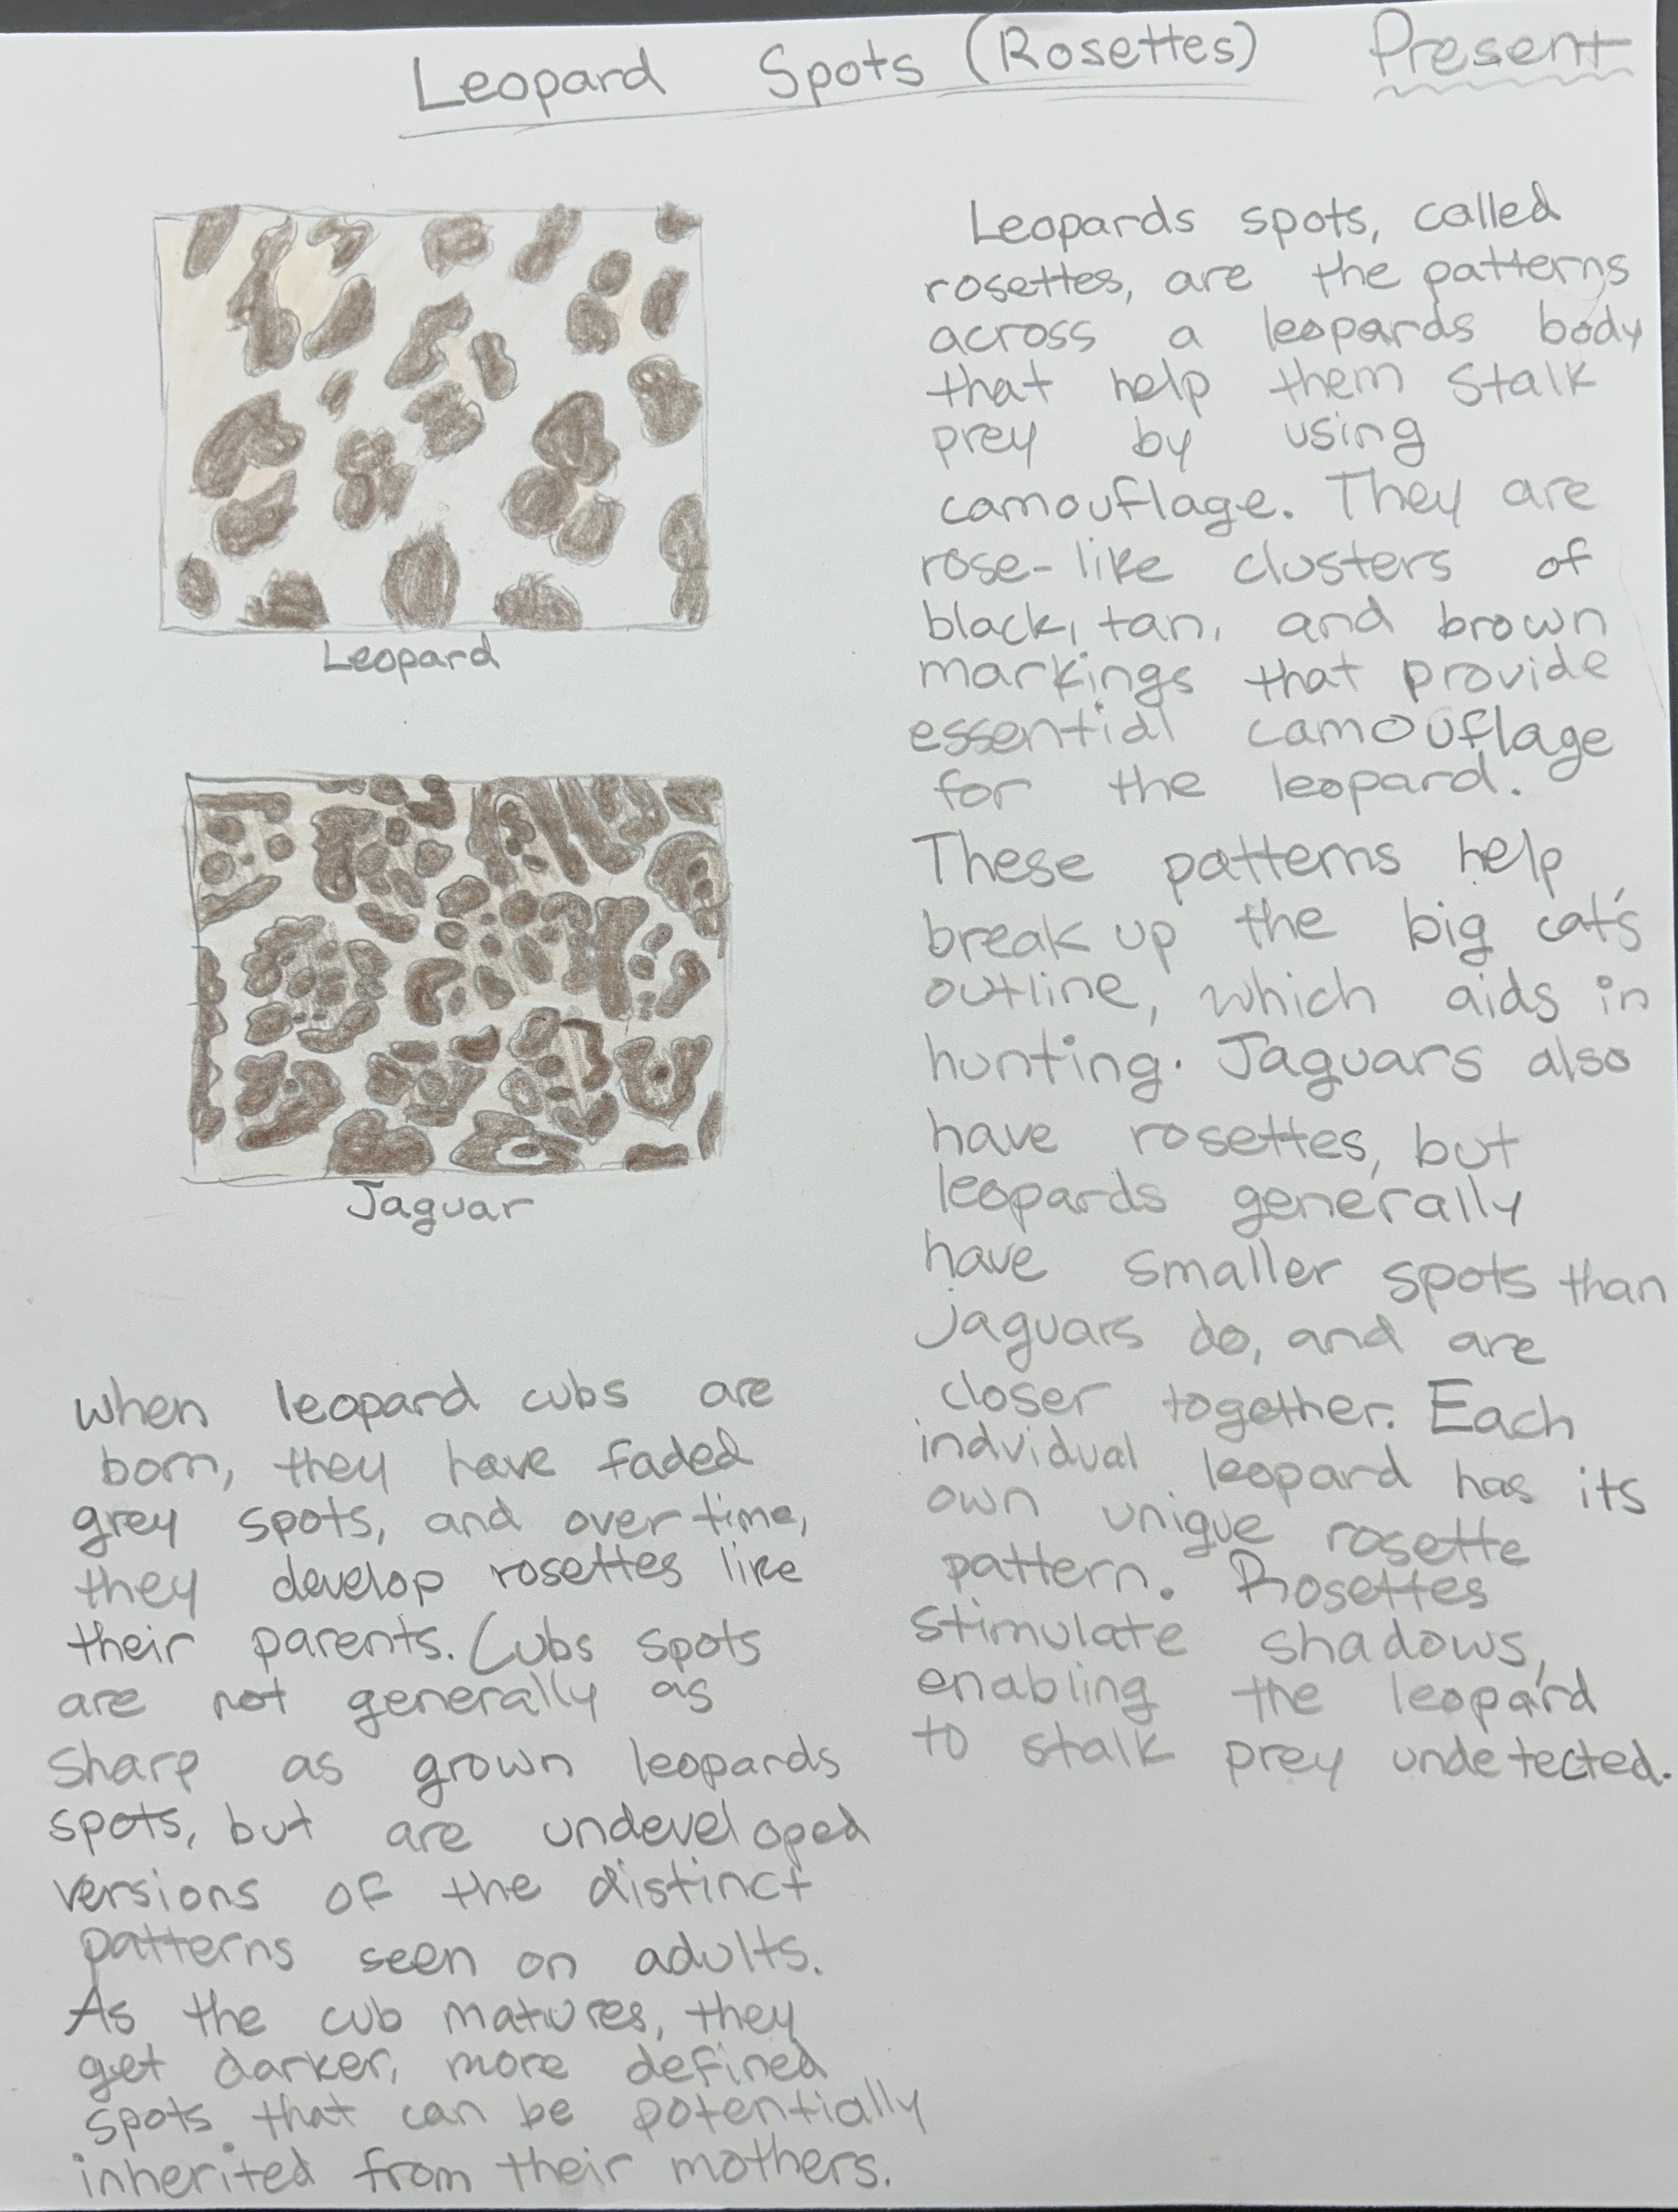 Leopard Spots (Rosettes) Present
Leopard
Jaguar
when leopard cubs are
born, they have faded
grey spots, and over time,
they develop rosettes like
their parents. Cubs spots
are not generally as
sharp as grown leopards
spots, but are undeveloped
versions of the distinct
patterns seen on adults.
As the cub matures, they
get darker, more defined
spots that can be potentially
inherited from their mothers.
Leopards spots, called
rosettes, are the patterns
across a leopards body
that help them stalk
prey by using
camouflage. They are
rose-like clusters of
black, tan, and brown
markings that provide
essential camouflage
for the leopard.
These patterns help
break up the big cat's
outline, which aids in
hunting. Jaguars also
have rosettes, but
leopards generally
have smaller spots than
jaguars do, and are
closer together. Each
indvidual leopard has its
own unique rosette
pattern. Rosettes
stimulate shadows,
enabling the leopard
to stalk prey undetected.